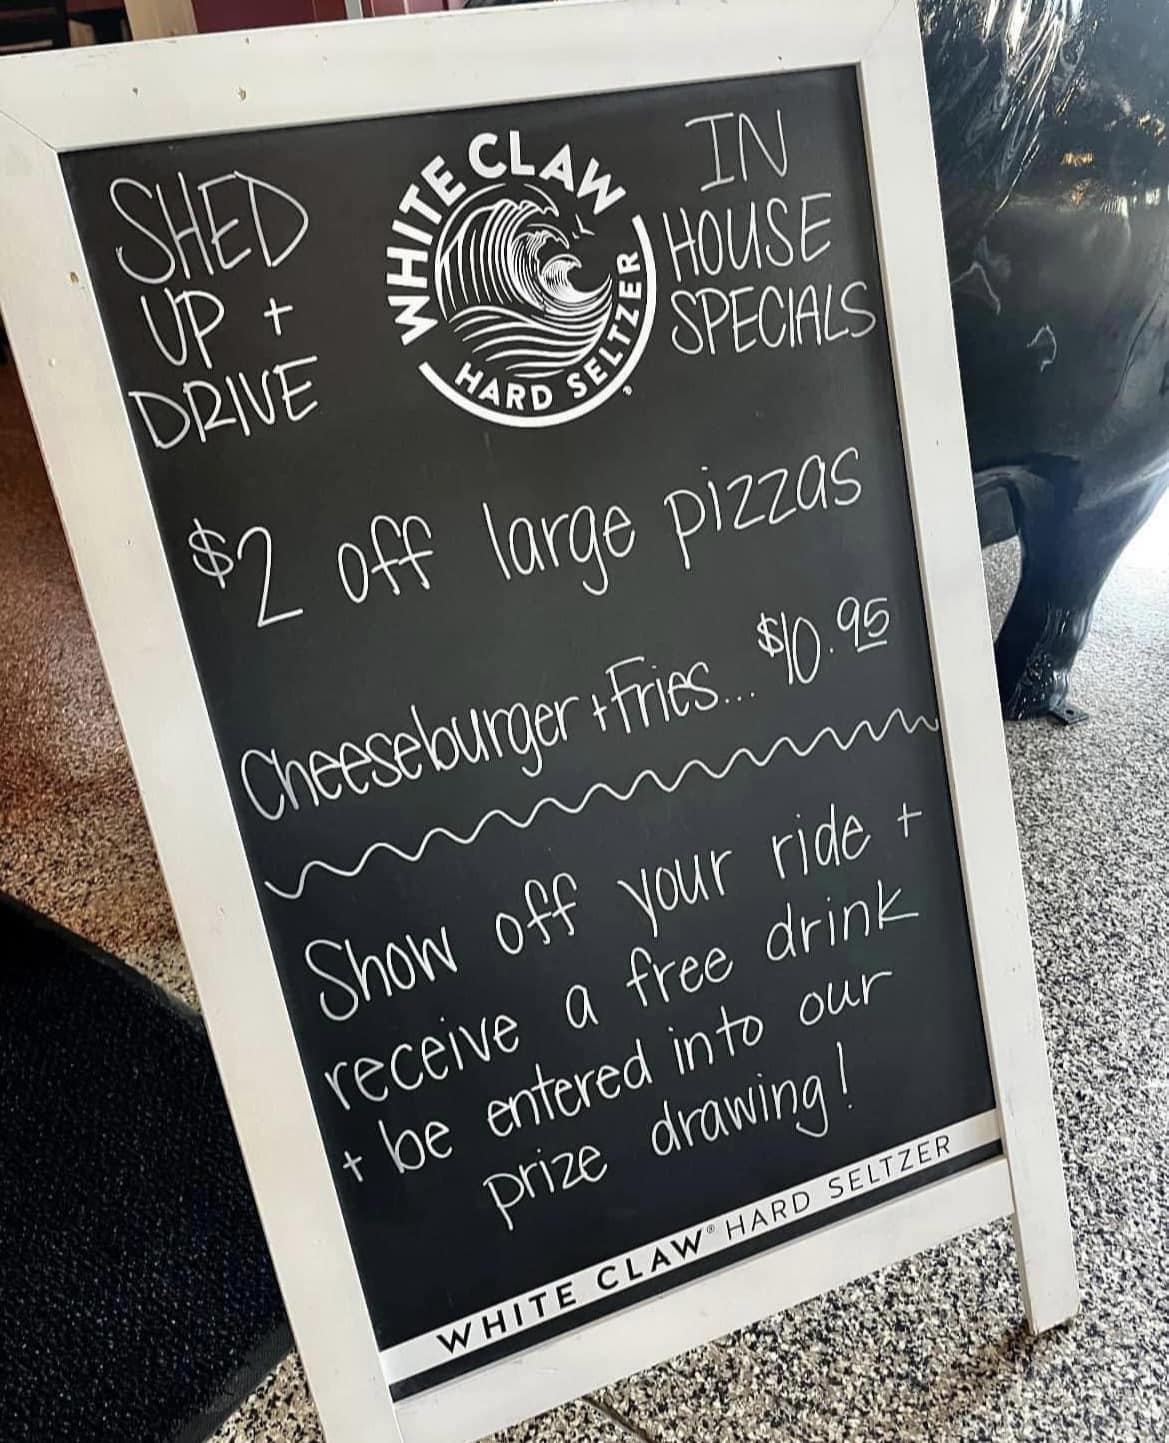 SHED
UP +
DRIVE
WHITE CLAW
HARD SELTZER
IN
HOUSE
SPECIALS
$2 off large pizzas
Cheeseburger + Fries... $10.95
Show off your ride +
receive a free drink
+ be entered into our
prize drawing!
WHITE CLAW® HARD SELTZER